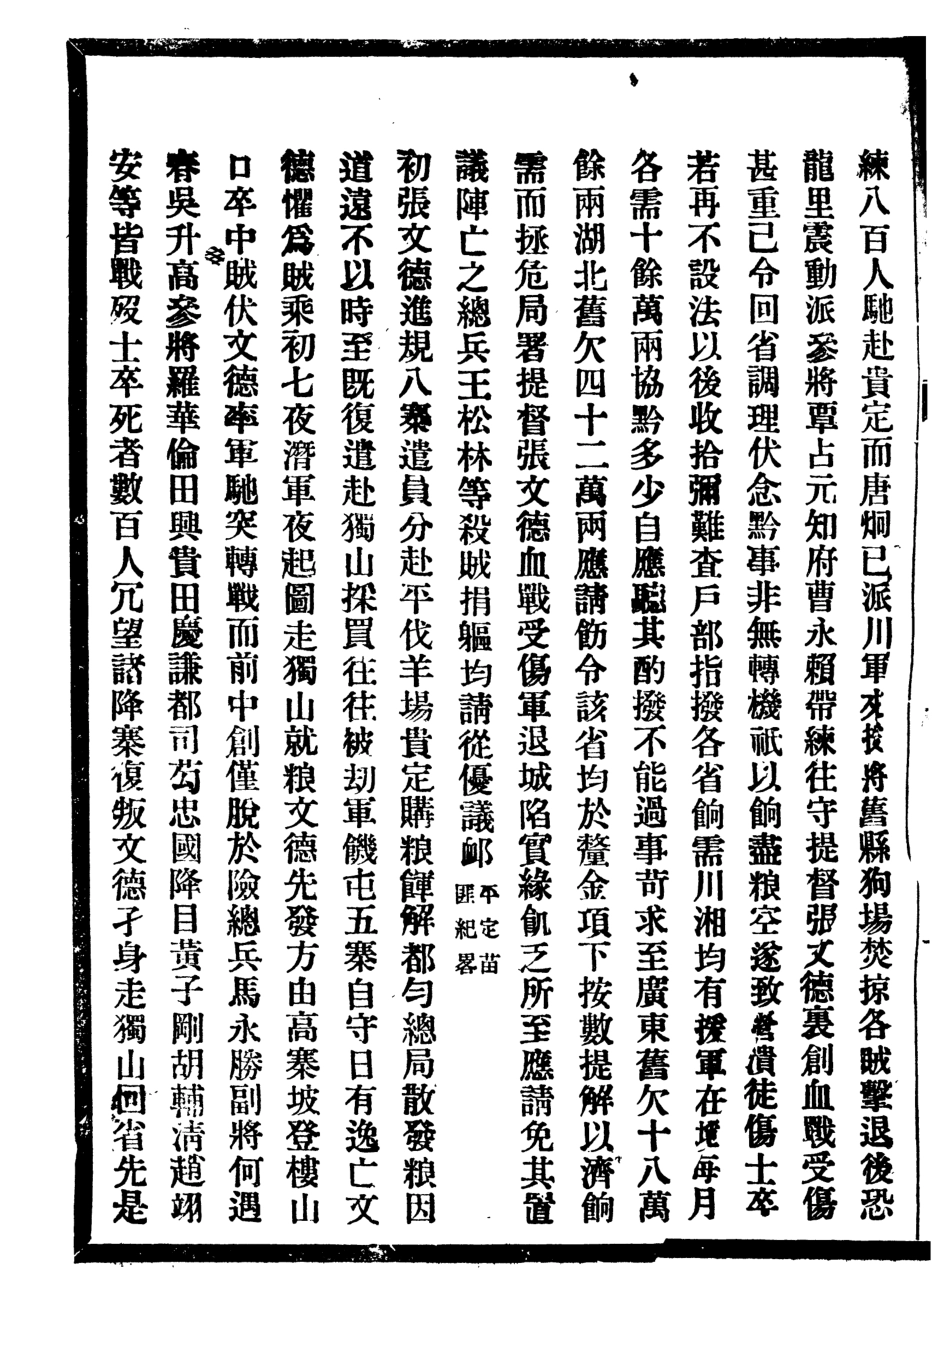 練八百人馳赴貴定而唐炯已派川軍次按將舊縣狗場焚掠各賊擊退後恐
龍里震動派參將覃占元知府曹永賴帶練往守提督張文德裹創血戰受傷
甚重已令回省調理伏念黔事非無轉機祇以餉盡粮空遂致奔潰徒傷士卒
若再不設法以後收拾彌難查戶部指撥各省餉需川湘均有援軍在境每月
各需十餘萬兩協黔多少自應聽其酌撥不能過事苛求至廣東舊欠十八萬
餘兩湖北舊欠四十二萬兩應請飭令該省均於釐金項下按數提解以濟餉
需而拯危局署提督張文德血戰受傷軍退城陷實緣飢乏所至應請免其置
議陣亡之總兵王松林等殺賊捐軀均請從優議卹平定苗匪紀畧
初張文德進規八寨遣員分赴平伐羊場貴定購粮餫解都勻總局散發粮因
道遠不以時至既復遣赴獨山採買往往被刧軍饑屯五寨自守日有逸亡文
德懼爲賊乘初七夜潛軍夜起圖走獨山就粮文德先發方由高寨坡登樓山
口卒中賊伏文德率軍馳突轉戰而前中創僅脫於險總兵馬永勝副將何遇
春吳升高參將羅華倫田興貴田慶謙都司芶忠國降目黃子剛胡輔清趙翊
安等皆戰歿士卒死者數百人冗望諸降寨復叛文德孑身走獨山回省先是